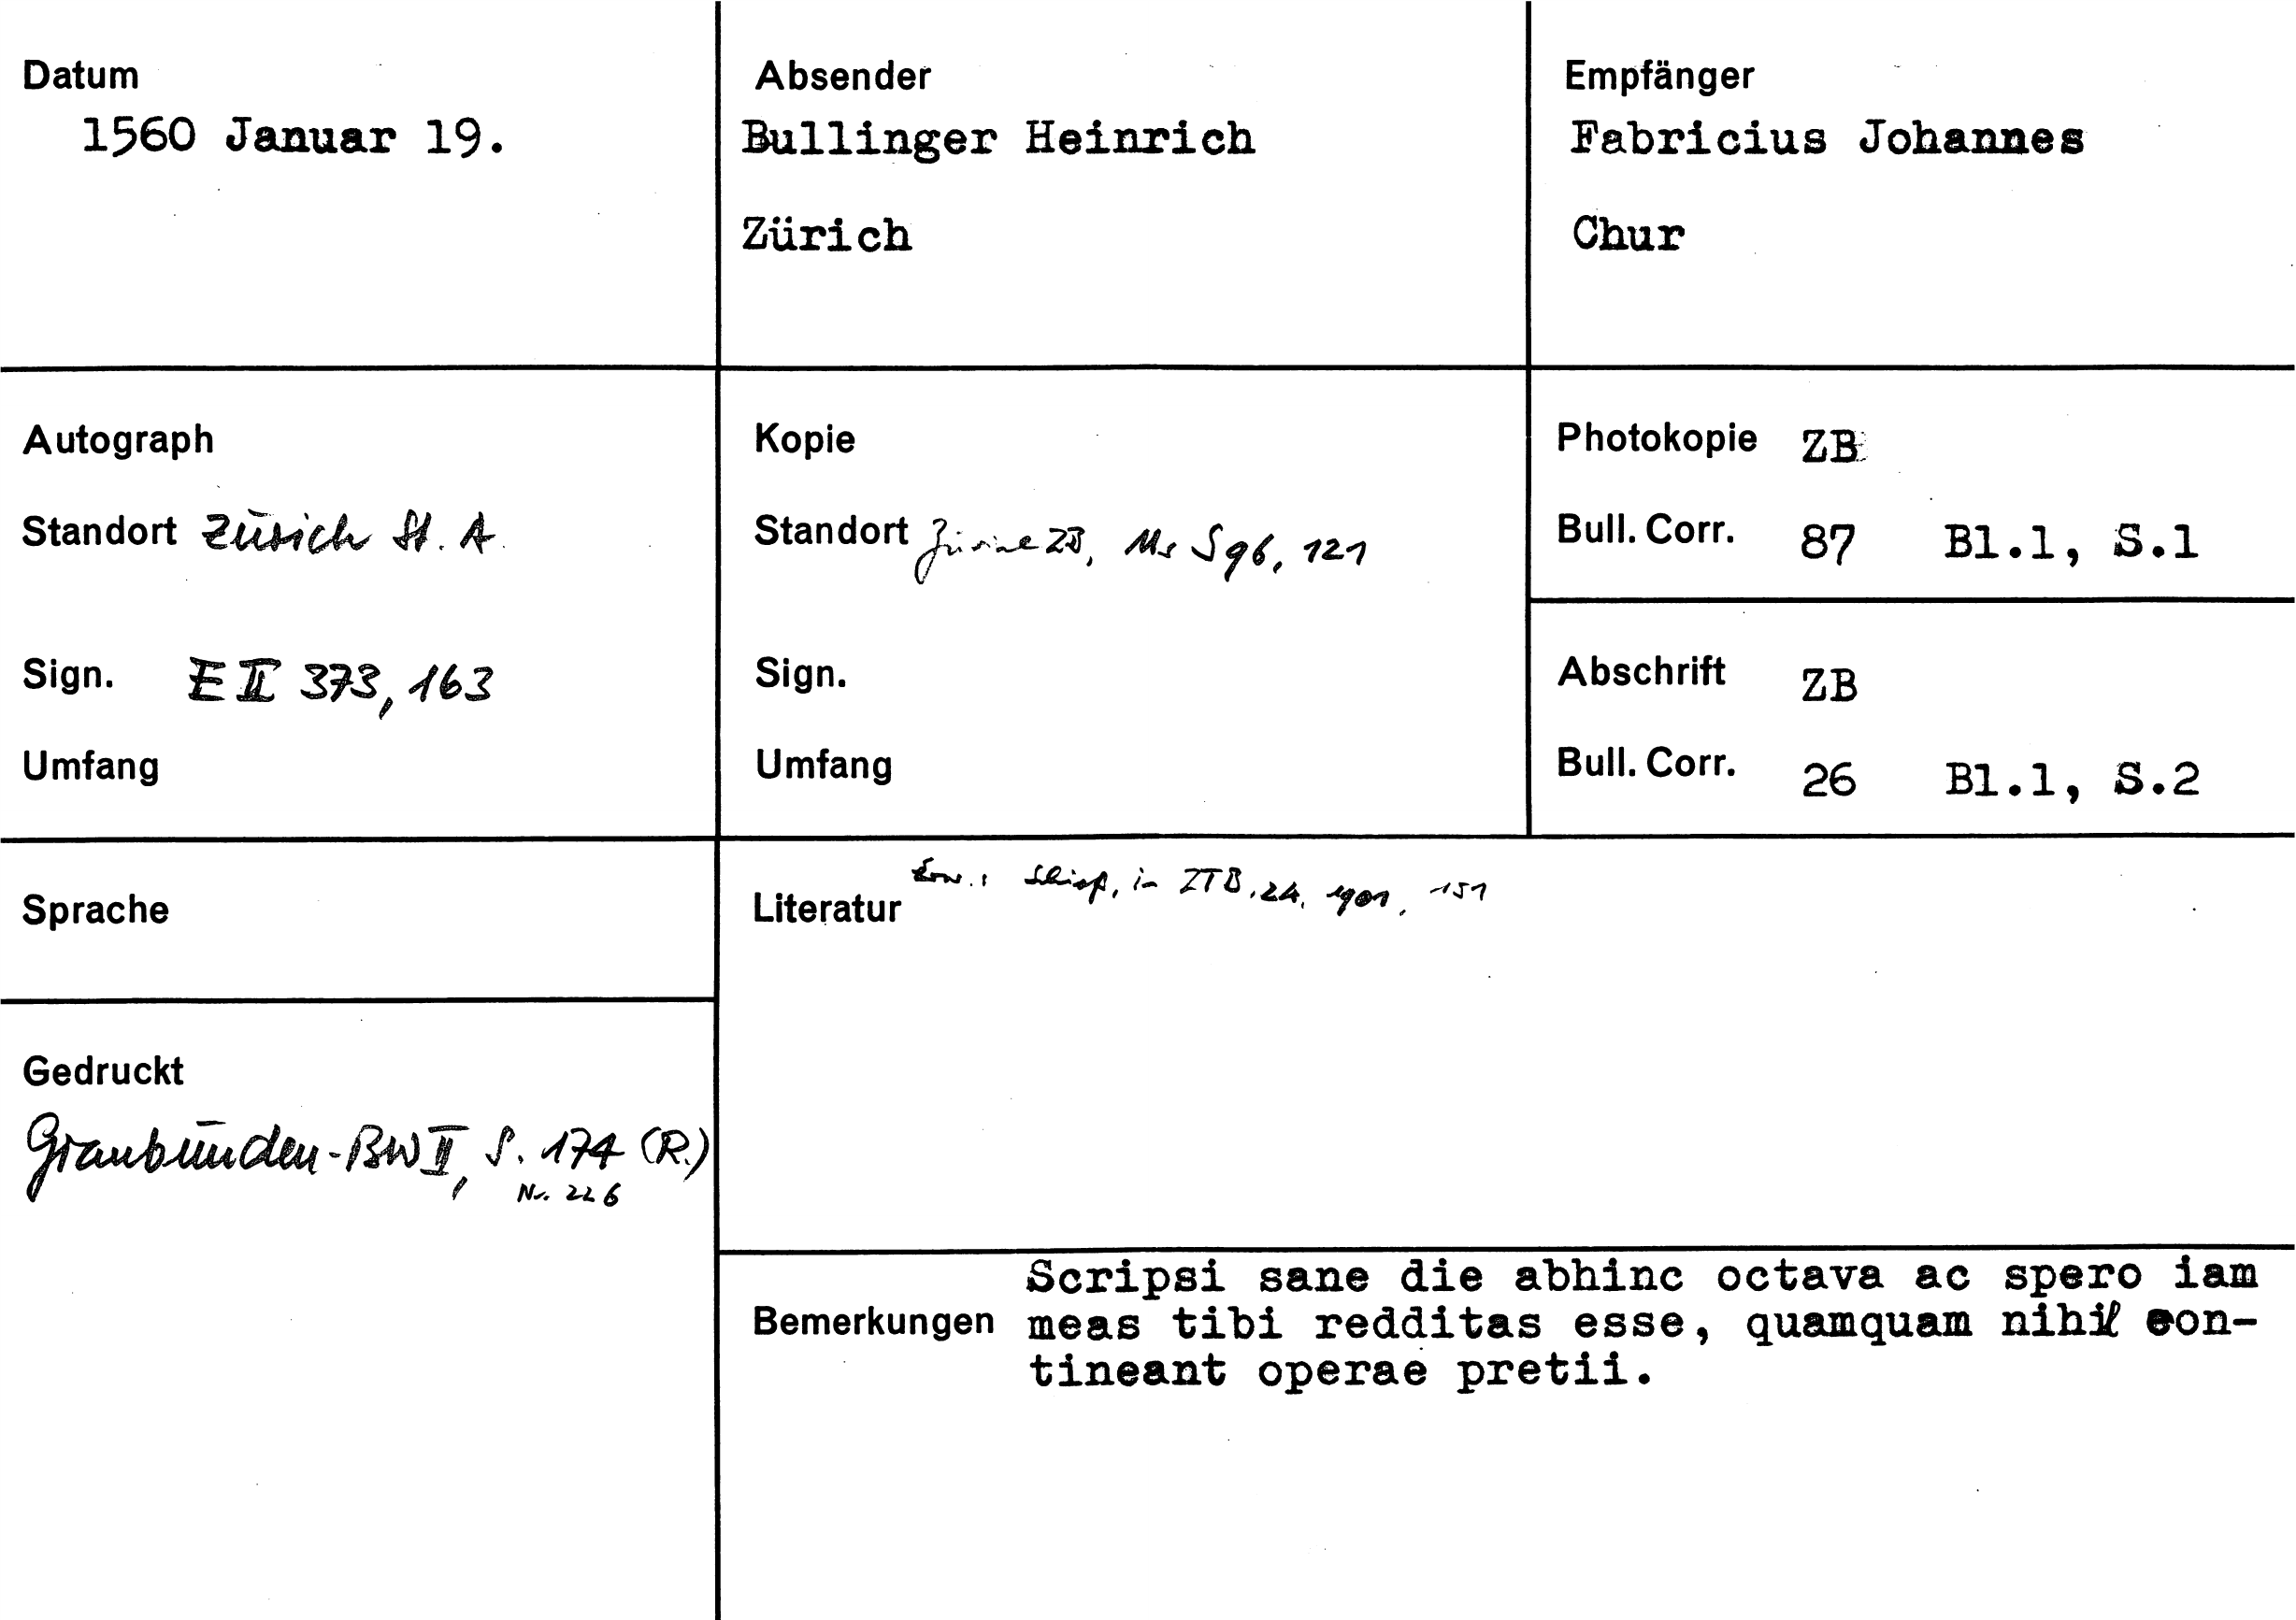 Datum
1560 Januar 19.
Absender
Bullinger Heinrich
Zürich
Empfänger
Fabricius Johannes
Chur
Autograph
Standort Zürich St. A.
Sign. E II 373, 163
Umfang
Kopie
Standort Zürich ZB, Ms S 96, 121
Sign.
Umfang
Photokopie ZB
Bull. Corr. 87 Bl.1, S.1
Abschrift ZB
Bull. Corr. 26 Bl.1, S.2
Sprache
Literatur in ZTB, 24, 1901, 151
Gedruckt
Graubünden-BW II, S. 174 (R.)
Nr. 226
Bemerkungen
Scripsi sane die abhinc octava ac spero iam
meas tibi redditas esse, quamquam nihil con-
tineant operae pretii.